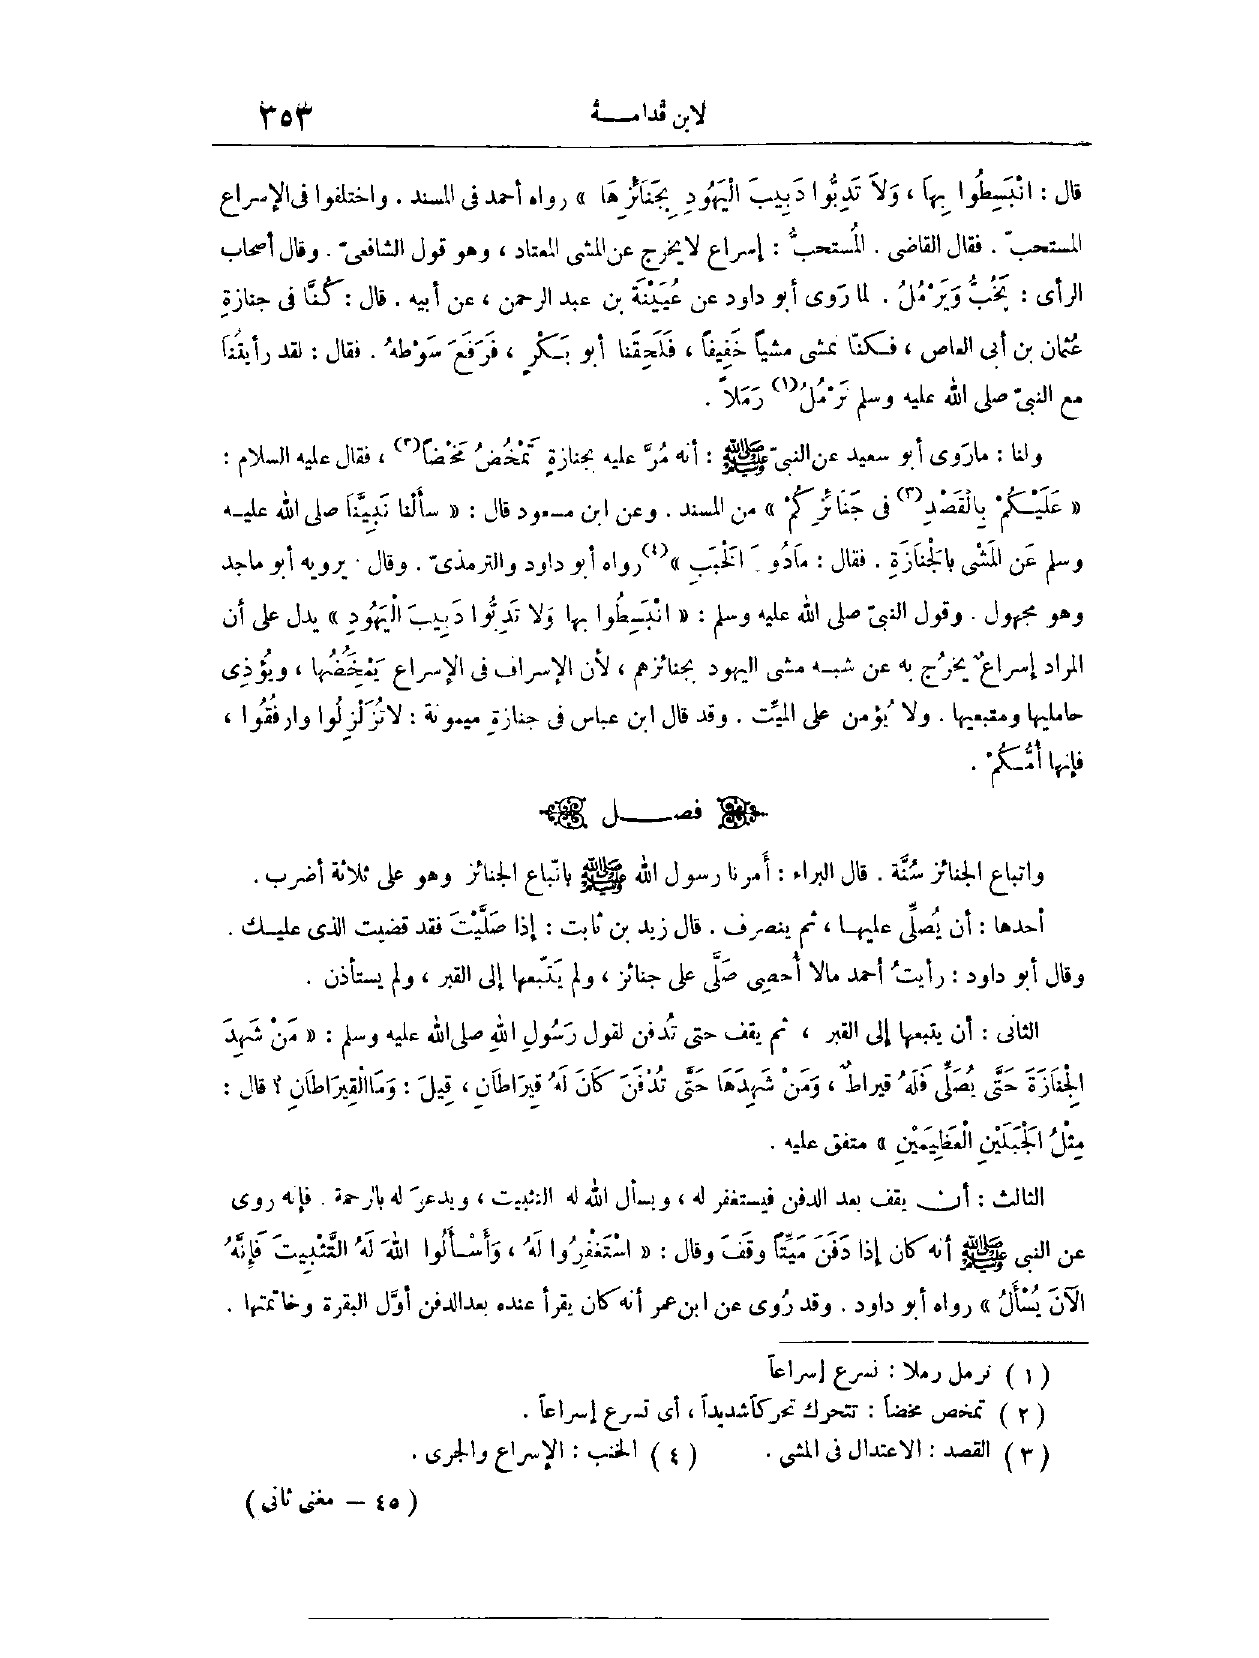 لابن قدامة ٣٥٣
قال : انْبَسِطُوا بِهَا ، وَلاَ تَدِبُّوا دَبِيبَ الْيَهُودِ بِجَنَائِزِهَا » رواه أحمد فى المسند . واختلفوا فى الإسراع
المستحبّ . فقال القاضى . المُستحبُّ : إسراع لا يخرج عن المشى المعتاد ، وهو قول الشافعىّ . وقال أصحاب
الرأى : يَخُبُّ وَيَرْمُلُ . لما رَوى أبو داود عن عُيَيْنَة بن عبد الرحمن ، عن أبيه . قال : كُنَّا فى جنازةِ
عُثمان بن أبى العاص ، فكنّا نمشى مشياً خَفِيفاً ، فَلَحِقَنا أبو بَكْرٍ ، فَرَفَعَ سَوْطهُ . فقال : لقد رأيتُنَا
مع النبىّ صلى الله عليه وسلم نَرْمُلُ(١) رَمَلاً .
ولنا : مارَوى أبو سعيد عن النبىّ ﷺ : أنه مُرَّ عليه بجنازةٍ تَمْخُضُ مَخْضاً(٢) ، فقال عليه السلام :
« عَلَيْكُمْ بِالْقَصْدِ(٣) فى جَنَائِزِكُمْ » من المسند . وعن ابن مسعود قال : « سألْنا نَبِيَّنَا صلى الله عليه
وسلم عَن المَشْى بالْجَنَازَةِ . فقال : مَادُونَ الْخَبَبِ »(٤) رواه أبو داود والترمذىّ . وقال . يرويه أبو ماجد
وهو مجهول . وقول النبىّ صلى الله عليه وسلم : « انْبَسِطُوا بها وَلا تَدِبُّوا دَبِيبَ الْيَهُودِ » يدل على أن
المراد إسراعٌ يخرُج به عن شبه مشى اليهود بجنائزهم ، لأن الإسراف فى الإسراع يَمْخُضُها ، ويُؤذِى
حامليها ومتبعيها . ولا يُؤمن على الميِّت . وقد قال ابن عباس فى جنازةِ ميمونة : لاتُزَلْزِلُوا وارفُقُوا ،
فإنها أمُّكُمْ .
فصل
واتباع الجنائز سُنَّة . قال البراء : أَمرنا رسول الله ﷺ باتّباع الجنائز وهو على ثلاثة أضرب .
أحدها : أن يُصلِّى عليها ، ثم ينصرف . قال زيد بن ثابت : إذا صَلَّيْتَ فقد قضيت الذى عليك .
وقال أبو داود : رأيتُ أحمد مالا أُحصِى صَلَّى على جنائز ، ولم يَتّبعها إلى القبر ، ولم يستأذن .
الثانى : أن يتبعها إلى القبر ، ثم يقف حتى تُدفن لقول رَسُولِ اللهِ صلى الله عليه وسلم : « مَنْ شَهِدَ
الْجِنَازَةَ حَتَّى يُصَلِّى فَلَهُ قيراطٌ ، وَمَنْ شَهِدَهَا حَتَّى تُدْفَنَ كَانَ لَهُ قِيرَاطَانِ ، قِيلَ : وَمَا الْقِيرَاطَانِ ؟ قال :
مِثْلُ الْجَبَلَيْنِ الْعَظِيمَيْنِ » متفق عليه .
الثالث : أن يقف بعد الدفن فيستغفر له ، ويسأل الله له التثبيت ، ويدعوَ له بالرحمة . فإنه روى
عن النبى ﷺ أنه كان إذا دَفَنَ مَيِّتاً وقَفَ وقال : « اسْتَغْفِرُوا لَهُ ، وَأَسْأَلُوا اللهَ لَهُ التَّثْبِيتَ فَإِنَّهُ
الآنَ يُسْأَلُ » رواه أبو داود . وقد رُوى عن ابن عمر أنه كان يقرأ عنده بعد الدفن أوَّل البقرة وخاتمتها .
( ١ ) نرمل رملا : نسرع إسراعاً
( ٢ ) تمخص مخضاً : تتحرك تحركاً شديداً ، أى تسرع إسراعاً .
( ٣ ) القصد : الاعتدال فى المشى . ( ٤ ) الخبب : الإسراع والجرى .
( ٤٥ — مغنى ثانى )